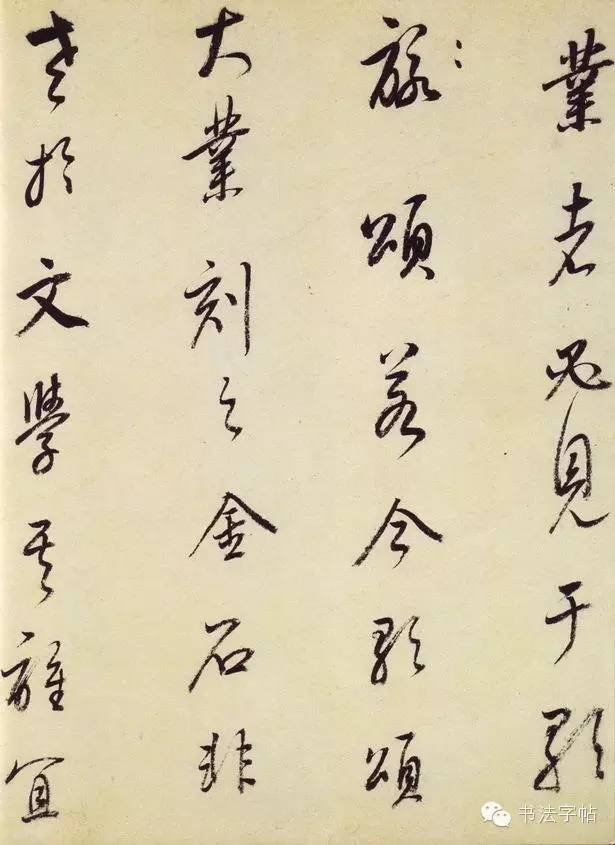 業者必見于歌
頌若今歌頌
大業刻之金石非
老於文學其誰宜
书法字帖